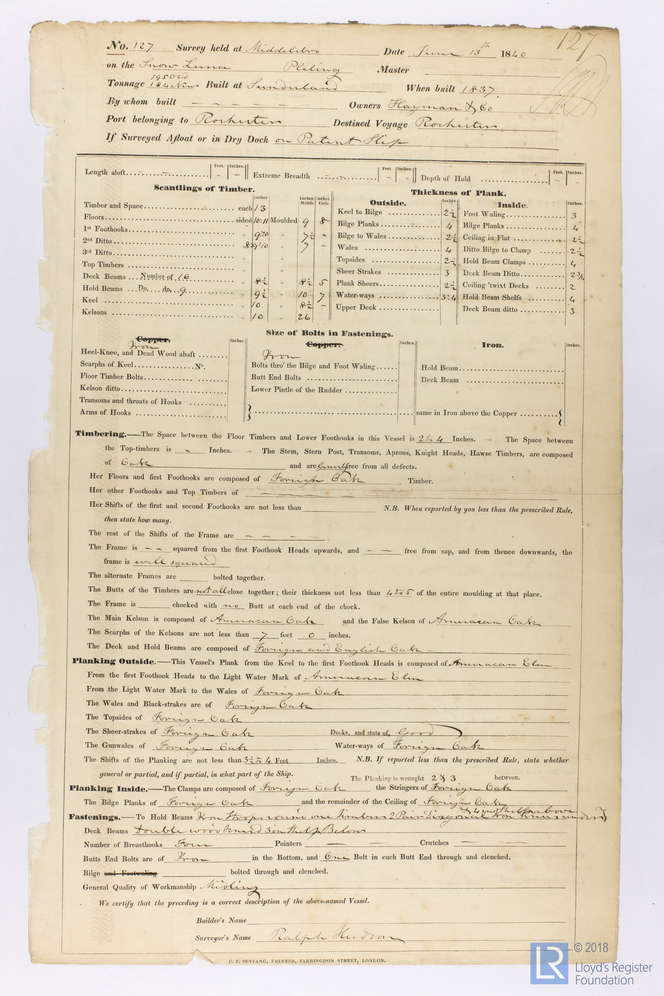 127
No. 127 Survey held at Middlesbro Date June 15th 1840
on the Snow Luna Master
Tonnage Built at Sunderland When built 1837
By whom built Owners Hayman & Co
Port belonging to Rochester Destined Voyage Rochester
If Surveyed Afloat or in Dry Dock on Patent Slip
Length aloft Feet. Inches. Extreme Breadth Feet. Inches. Depth of Hold Feet. Inches.
Scantlings of Timber.
Timber and Space each 13
Floors sided 10.11 Moulded 9 8
1st Foothooks
2nd Ditto 7
3rd Ditto
Top Timbers
Deck Beams Number of 16 8½ 8½ 5
Hold Beams Do. do. 9 9½ 10 7
Keel 10 8½
Kelsons 10 26
Thickness of Plank.
Outside. Inches
Keel to Bilge 2½
Bilge Planks 4
Bilge to Wales 2½
Wales 4
Topsides 2½
Sheer Strakes 3
Plank Sheers 2½
Water-ways
Upper Deck
Inside. Inches.
Foot Waling 3
Bilge Planks 4
Ceiling in Flat 2½
Ditto Bilge to Clamp 2½
Hold Beam Clamps 4
Deck Beam Ditto
Ceiling 'twixt Decks 2
Hold Beam Shelfs 4
Deck Beam ditto 3
Size of Bolts in Fastenings.
Copper. Iron
Heel-Knee, and Dead Wood abaft
Scarphs of Keel No.
Floor Timber Bolts
Kelson ditto
Transoms and throats of Hooks
Arms of Hooks
Copper. Iron
Bolts thro' the Bilge and Foot Waling
Butt End Bolts
Lower Pintle of the Rudder
Iron.
Hold Beam
Deck Beam
same in Iron above the Copper
Timbering.—The Space between the Floor Timbers and Lower Foothooks in this Vessel is 2 to 4 Inches. — The Space between
the Top-timbers is - Inches. — The Stem, Stern Post, Transoms, Aprons, Knight Heads, Hawse Timbers, are composed
of Oak and are free from all defects.
Her Floors and first Foothooks are composed of Foreign Oak Timber.
Her other Foothooks and Top Timbers of
Her Shifts of the first and second Foothooks are not less than N.B. When reported by you less than the prescribed Rule,
then state how many.
The rest of the Shifts of the Frame are
The Frame is -- squared from the first Foothook Heads upwards, and -- free from sap, and from thence downwards, the
frame is well squared
The alternate Frames are bolted together.
The Butts of the Timbers are not all close together; their thickness not less than 4 to 5 of the entire moulding at that place.
The Frame is chocked with no Butt at each end of the chock.
The Main Kelson is composed of American Oak and the False Kelson of American Oak
The Scarphs of the Kelsons are not less than 7 feet 0 inches.
The Deck and Hold Beams are composed of Foreign and English Oak
Planking Outside.—This Vessel's Plank from the Keel to the first Foothook Heads is composed of American Elm
From the first Foothook Heads to the Light Water Mark of American Elm
From the Light Water Mark to the Wales of Foreign Oak
The Wales and Black-strakes are of Foreign Oak
The Topsides of Foreign Oak
The Sheer-strakes of Foreign Oak Decks, and state of, Good
The Gunwales of Foreign Oak Water-ways of Foreign Oak
The Shifts of the Planking are not less than 3½ to 4 Feet Inches. N.B. If reported less than the prescribed Rule, state whether
general or partial, and if partial, in what part of the Ship. The Planking is wrought 2 & 3 between.
Planking Inside.—The Clamps are composed of Foreign Oak the Stringers of Foreign Oak
The Bilge Planks of Foreign Oak and the remainder of the Ceiling of Foreign Oak
Fastenings.—To Hold Beams Iron Hoops round
Deck Beams Double wood knee'd 3 in Shelf Below
Number of Breasthooks Four Pointers Crutches
Butts End Bolts are of Iron in the Bottom, and One Bolt in each Butt End through and clenched.
Bilge and Footwaling bolted through and clenched.
General Quality of Workmanship Midling
We certify that the preceding is a correct description of the above-named Vessel.
Builder's Name
Surveyor's Name Ralph Hudson
C. F. SEYFANG, PRINTER, FARRINGDON STREET, LONDON.
LR © 2018
Lloyd's Register
Foundation